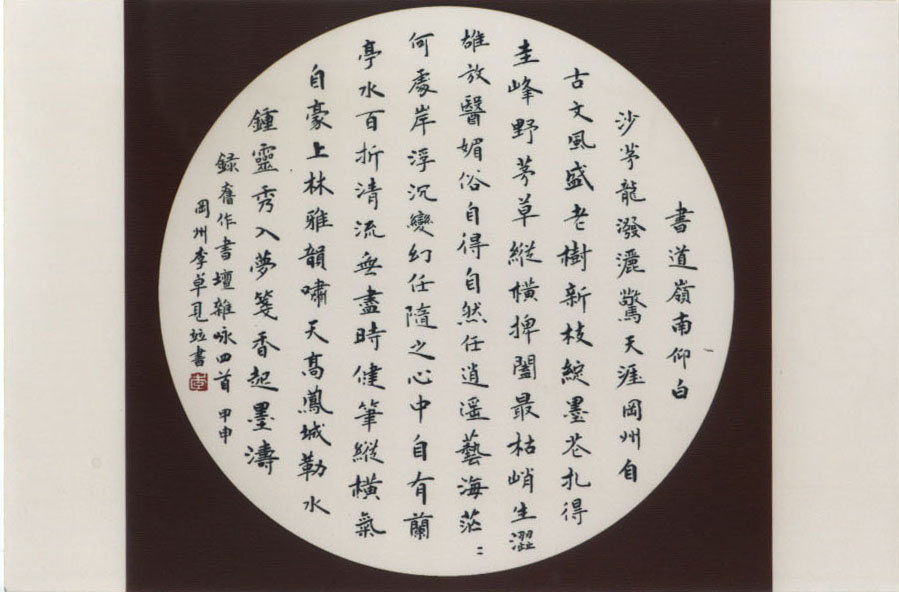 書道嶺南仰白
沙茅龍潑灑驚天涯岡州自
古文風盛老樹新枝綻墨花扎得
圭峰野茅草縱橫捭闔最枯峭生澀
雄放醫媚俗自得自然任逍遥藝海茫〻
何處岸浮沉變幻任隨之心中自有蘭
亭水百折清流無盡時健筆縱橫氣
自豪上林雅韻嘯天高鳳城勒水
鍾靈秀入夢箋香起墨濤
録舊作書壇雜咏四首 甲申
岡州李卓見並書
李